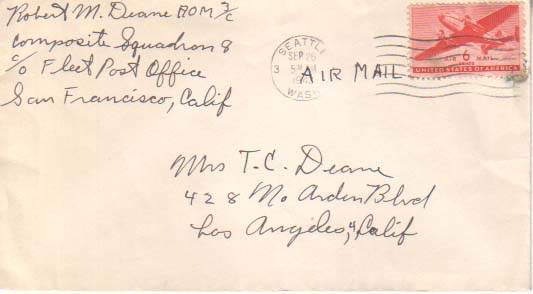 Robert M. Deane AOM 3/c
Composite Squadron 8
c/o Fleet Post Office
San Francisco, Calif
SEATTLE
SEP 26
3
WASH
AIR MAIL
6
AIR MAIL
CENTS
UNITED STATES OF AMERICA
Mrs T. C. Deane
428 No Arden Blvd
Los Angeles, 4, Calif